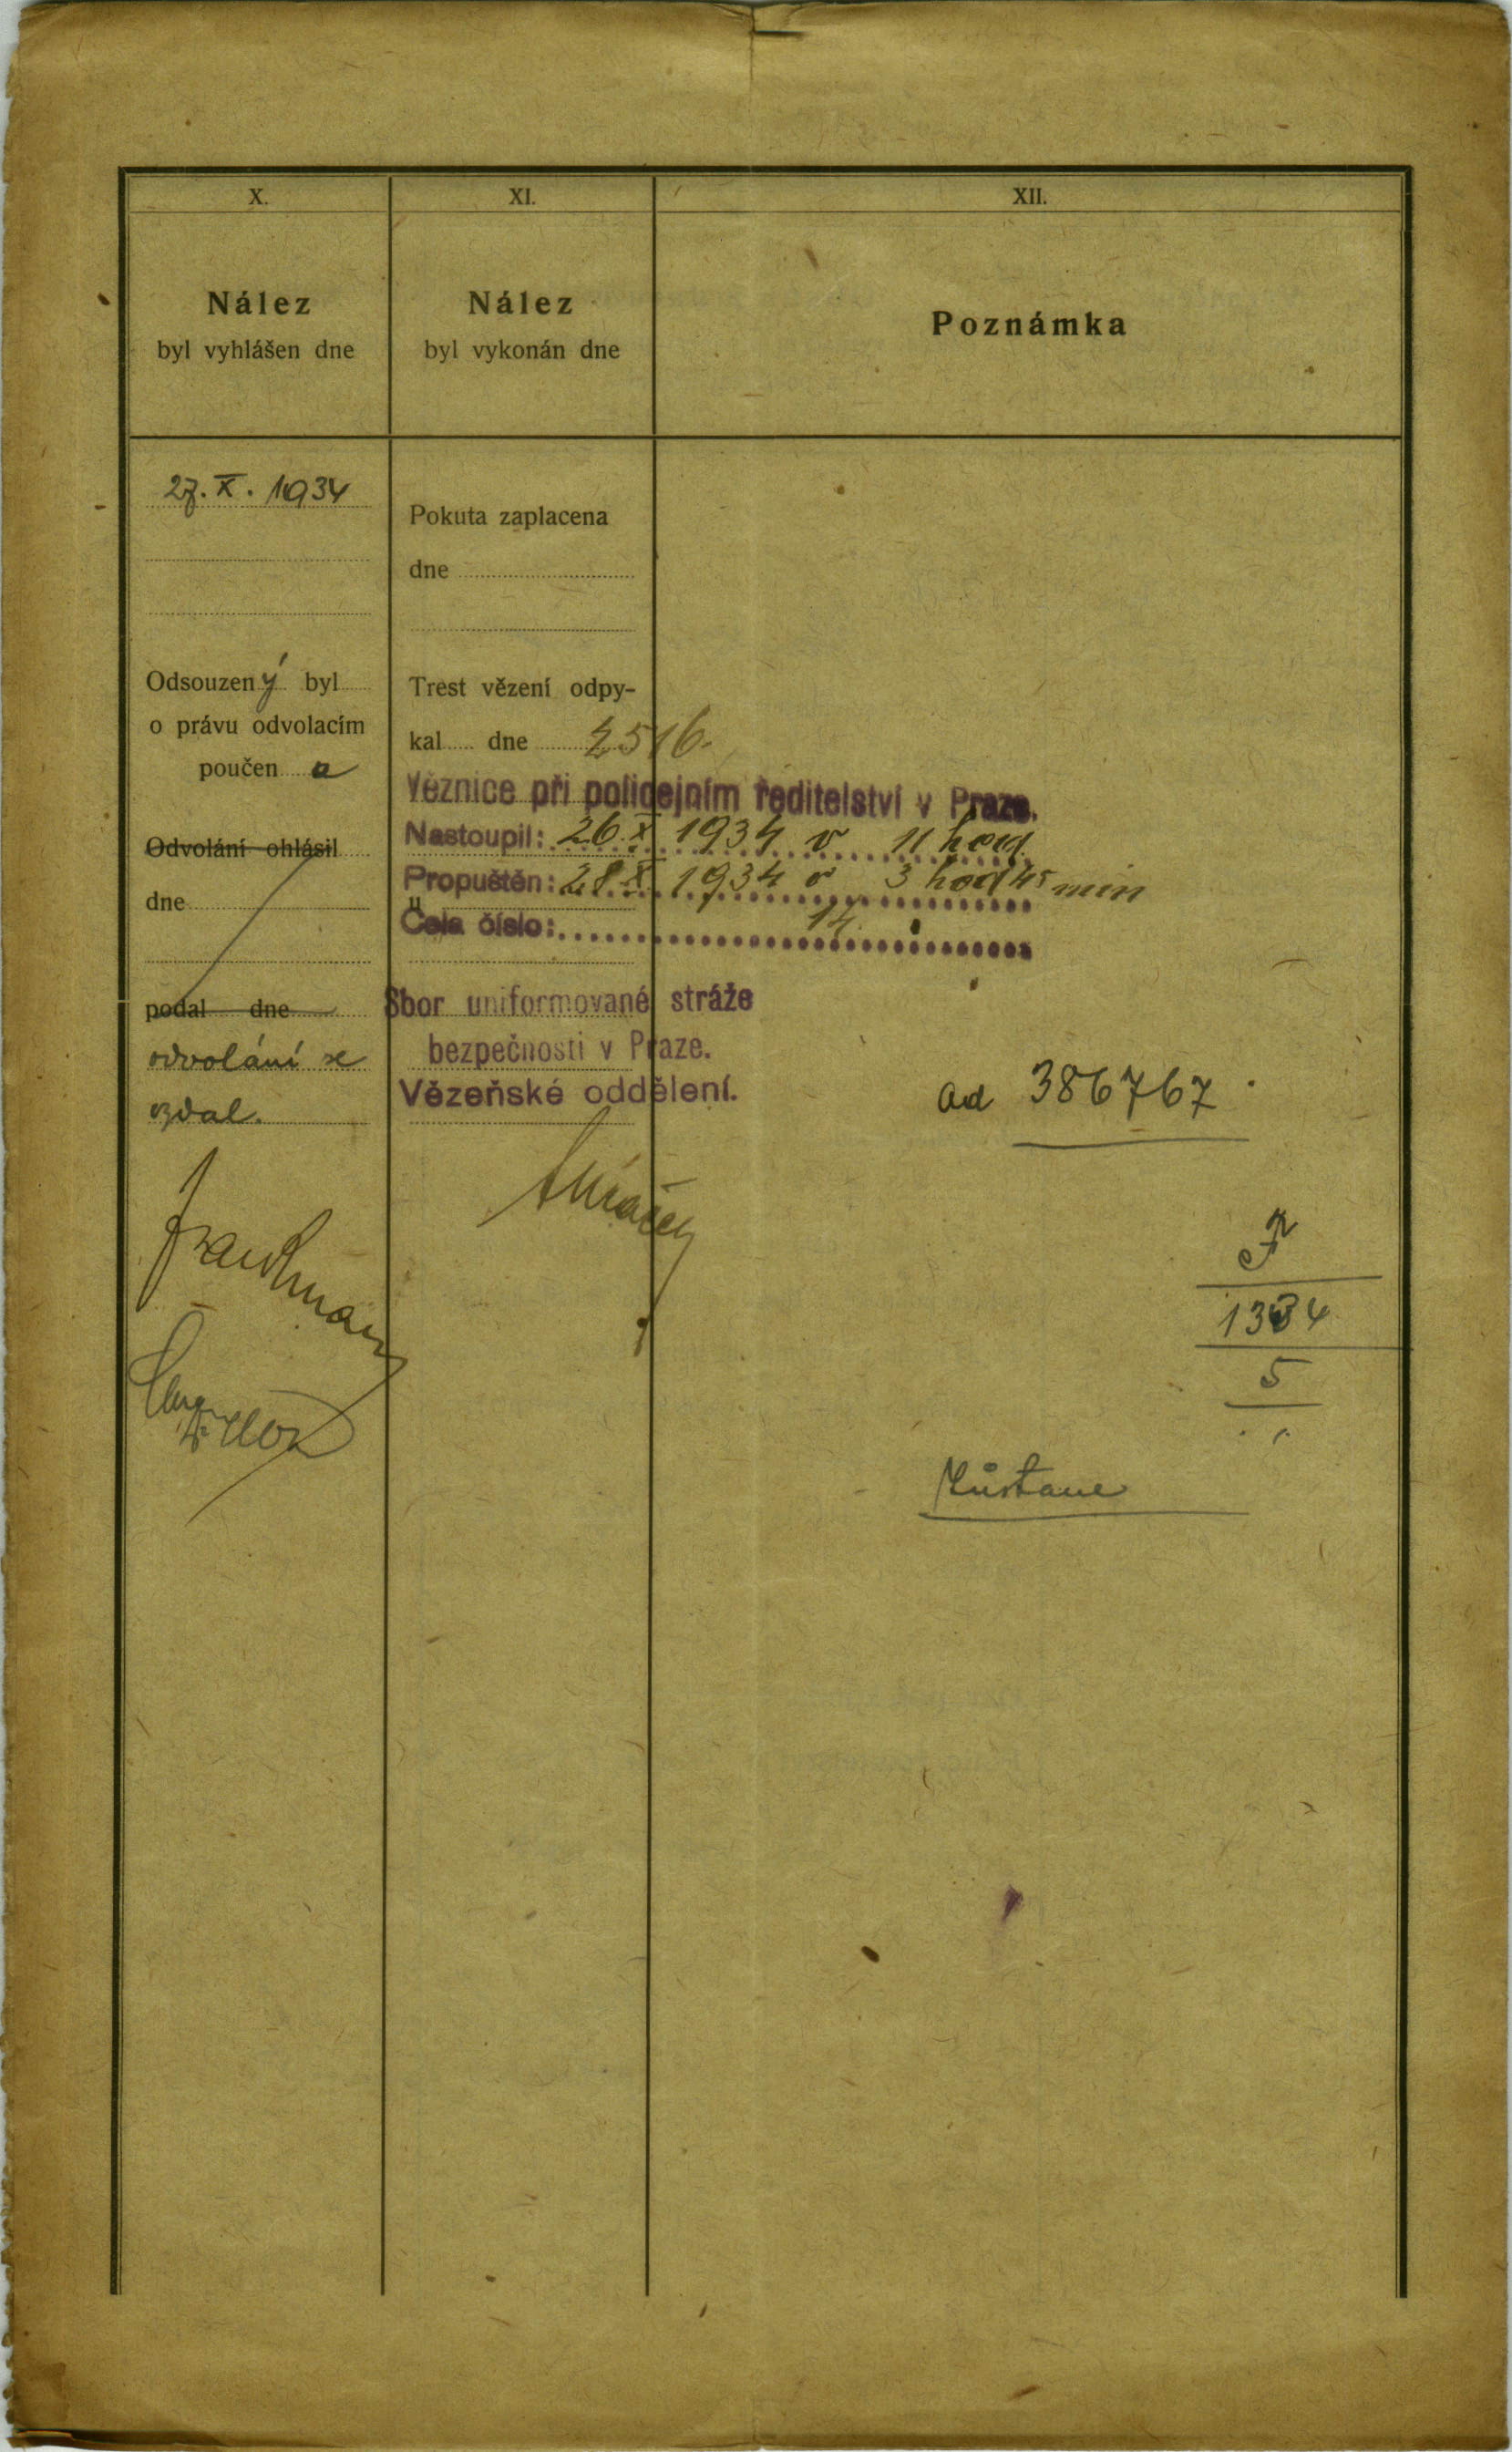 X.
XI.
XII.
Nález
byl vyhlášen dne
Nález
byl vykonán dne
Poznámka
27. X. 1934
Odsouzený byl
o právu odvolacím
poučen a
Odvolání ohlásil
dne
podal dne
odvolání se
vzdal.
Pokuta zaplacena
dne
Trest vězení odpy-
kal dne
Věznice při policejním ředitelství v Praze.
Nastoupil: 26. X. 1934 v 11 hod.
Propuštěn: 28. X. 1934 v 3 hod 45 min
Cela číslo: 14.
Sbor uniformované stráže
bezpečnosti v Praze.
Vězeňské oddělení.
ad 386767.
1334
5
Zůstane